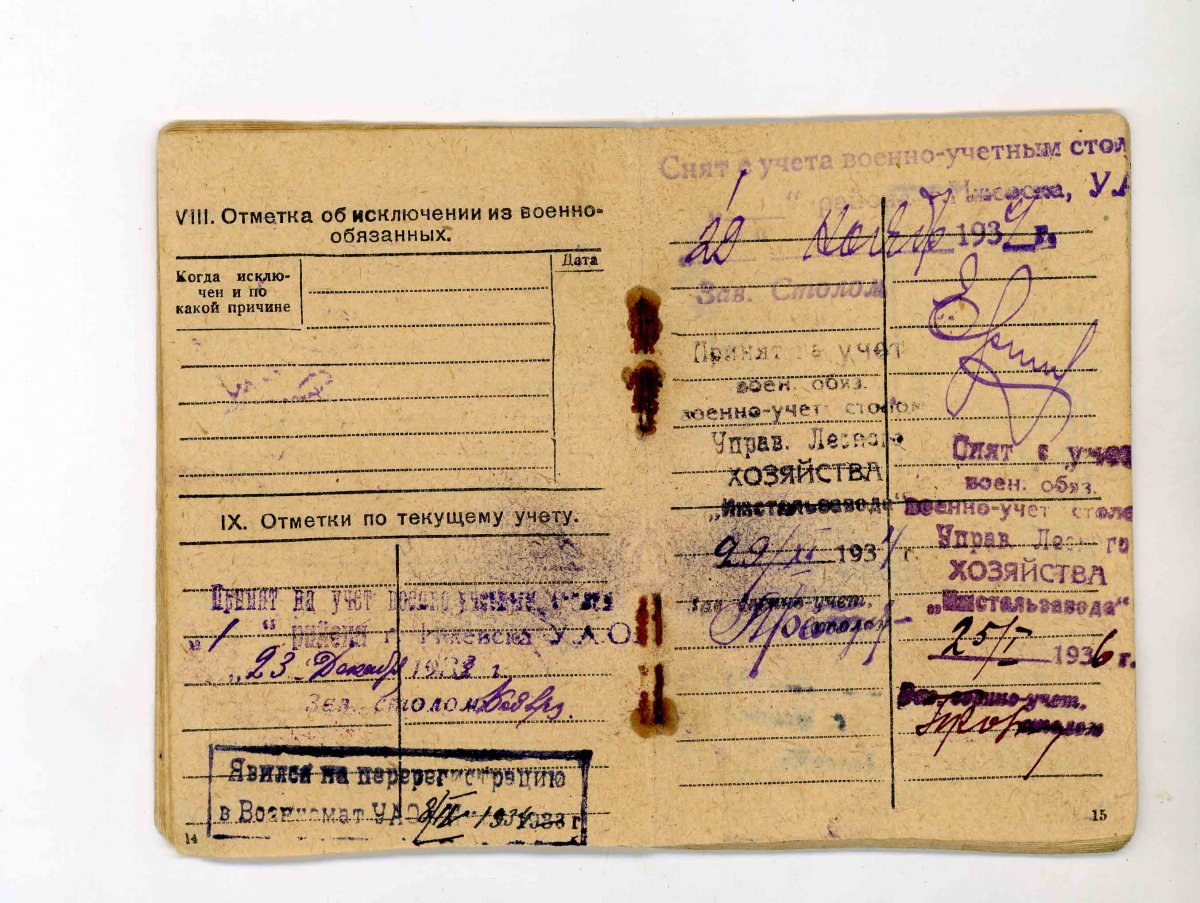 VIII. Отметка об исключении из военно-
обязанных.
Когда исклю-
чен и по
какой причине
Дата
IX. Отметки по текущему учету.
Принят на учет военно учетным столом
„1 “ района г. Ижевска У.А.О.
„23 Декабр 1933 г.
Зав. столом
Явился на перерегистрацию
в Военкомат УАО 1934 1933 г
14
Снят с учета военно-учетным стол
района г. Ижевска, У.А
20 Ноябр 1934 г.
Зав. Столом
Принят на учет
воен. обяз.
военно-учет столом
Управ. Лесного
ХОЗЯЙСТВА
„Ижстальзавода“
29/XI 1934 г.
Зав военно-учет.
столом
Снят с учета
воен. обяз.
Военно-учет столе
Управ Лесного
ХОЗЯЙСТВА
„Ижстальзавода“
25/I 1936 г.
Зав военно-учет.
столом
15